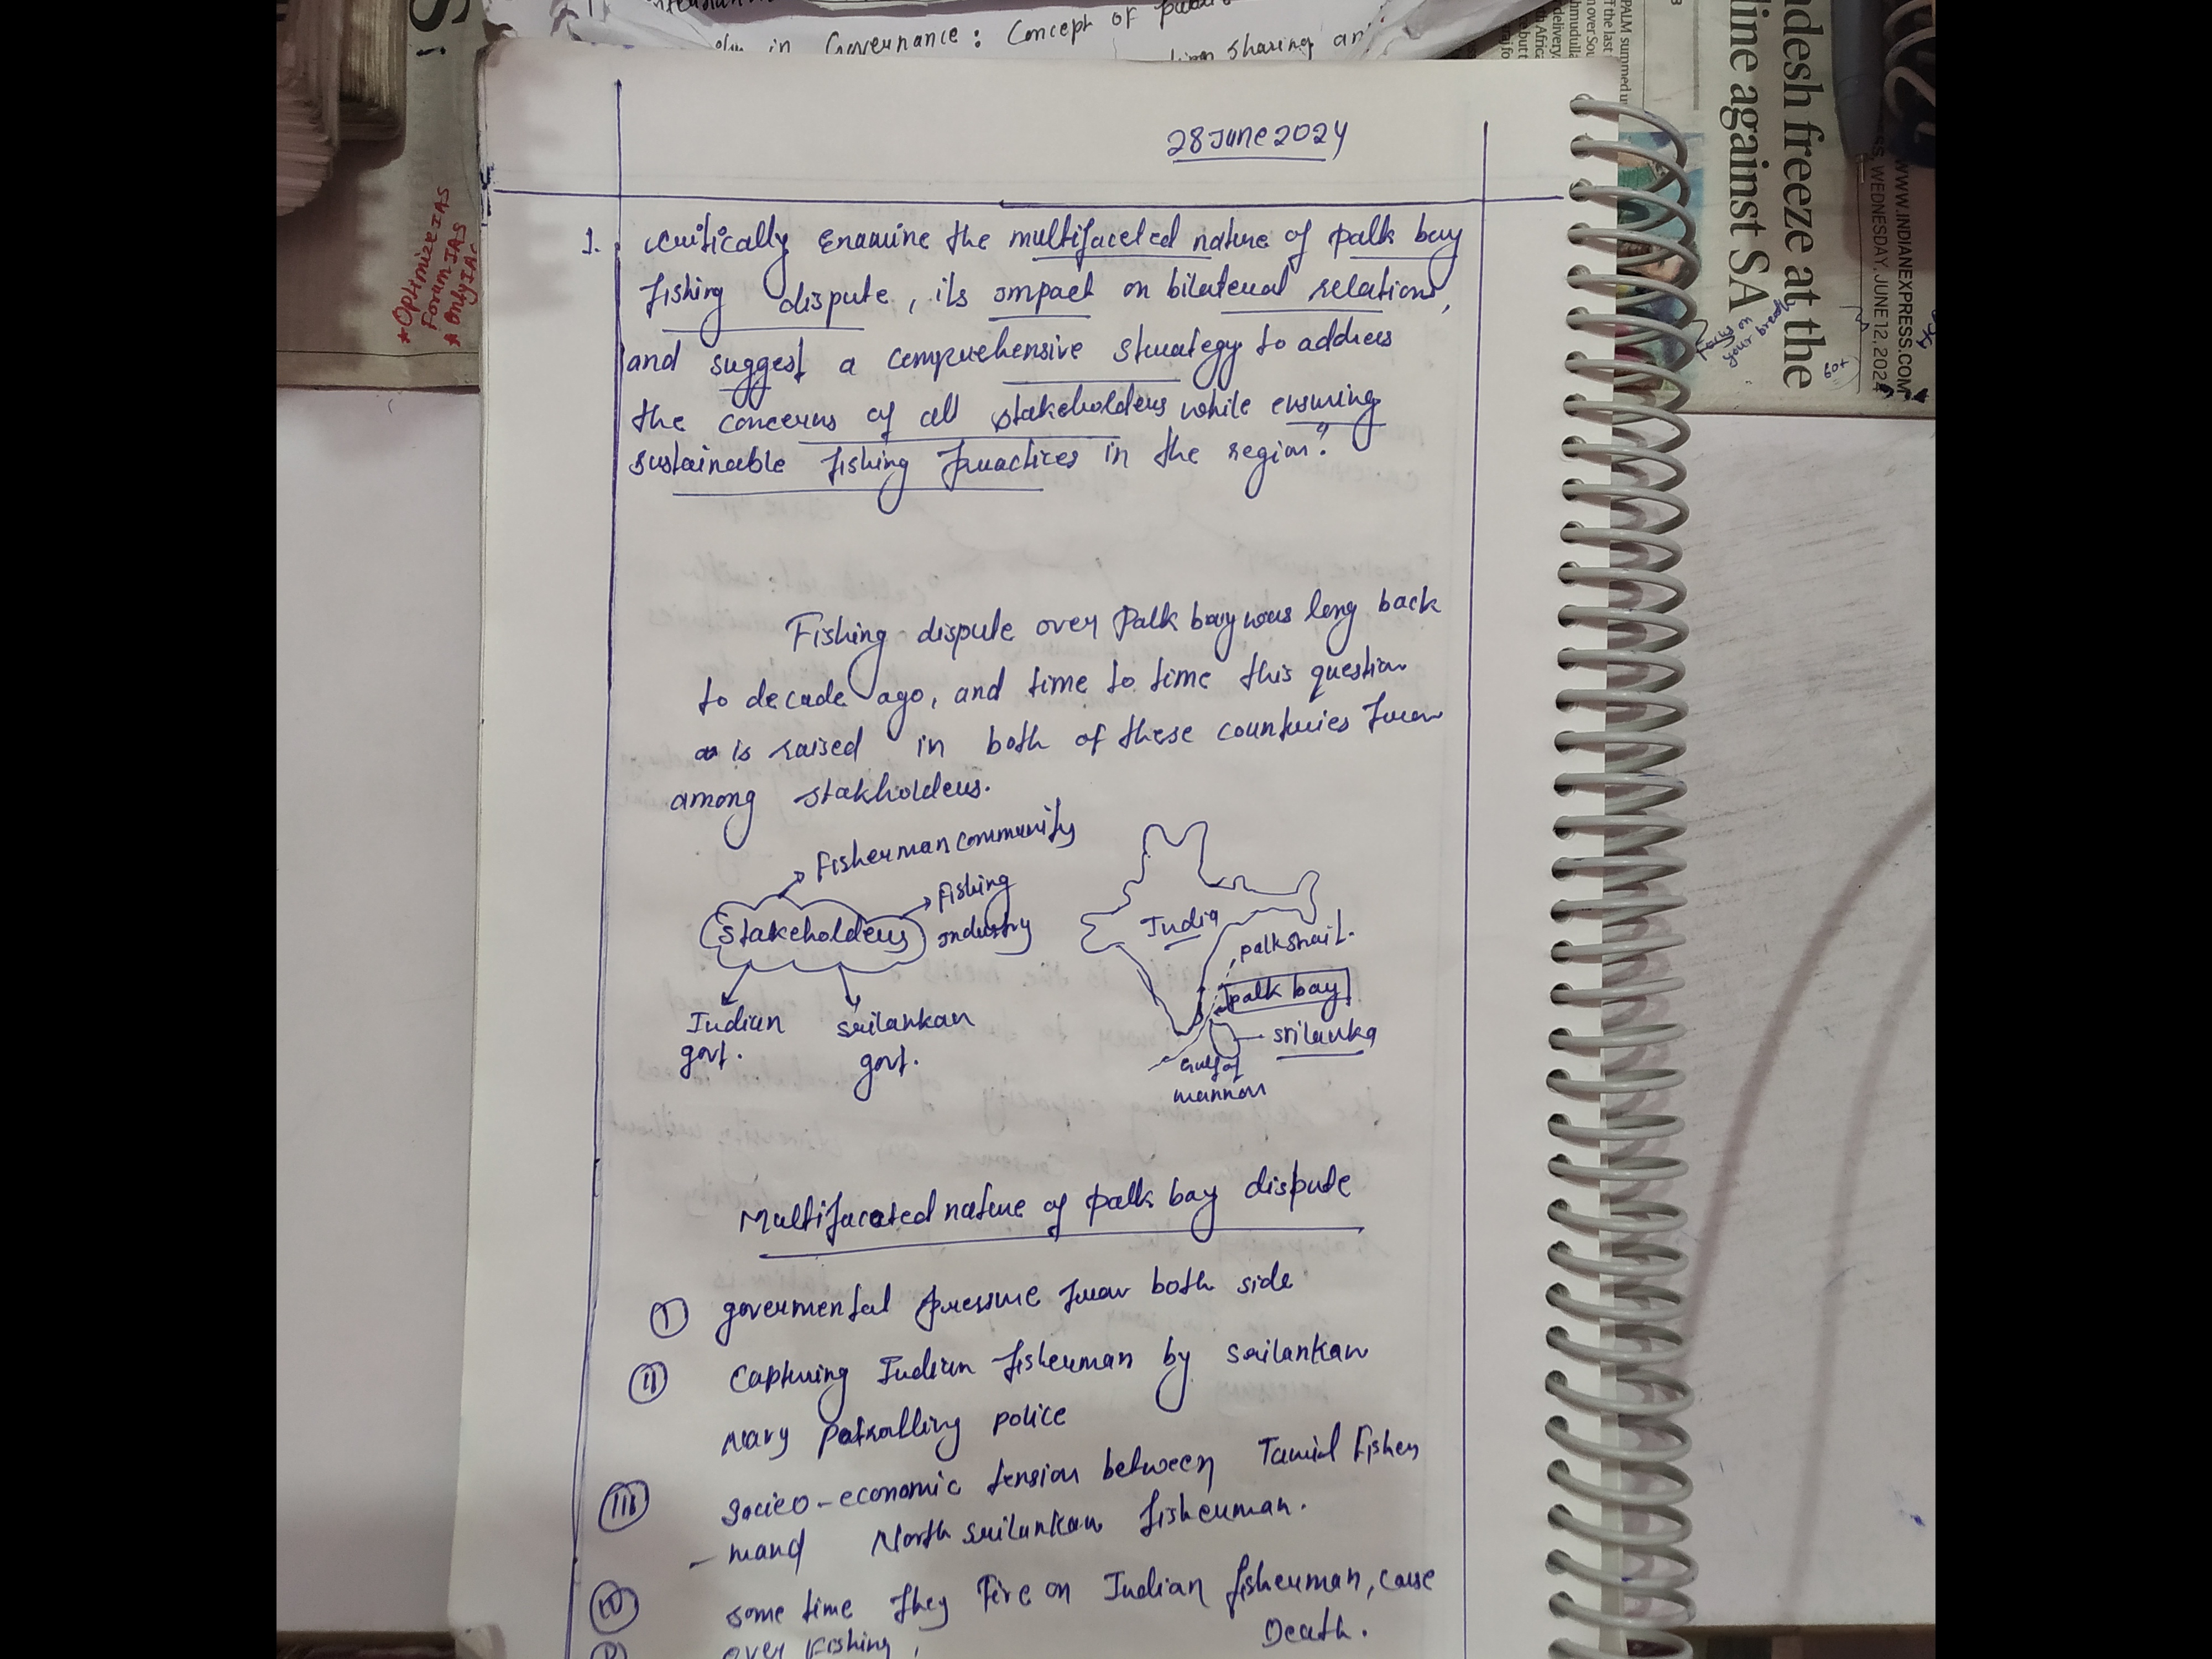 in Governance: Concept of
sharing an
28 June 2024
1. critically examine the multifaceted nature of palk bay
fishing dispute, its impact on bilateral relations,
and suggest a comprehensive strategy to address
the concerns of all stakeholders while ensuring
sustainable fishing practices in the region?
Fishing dispute over Palk bay was long back
to decade ago, and time to time this question
is raised in both of these countries from
among stakholders.
Fisherman community
Fishing
industry
stakeholders
Indian
govt.
srilankan
govt.
India
palkstrait.
palk bay
srilanka
Gulf of
mannar
Multifacated nature of palk bay dispute
(I) govermental pressure from both side
(II) Capturing Indian fisherman by srilankan
navy patrolling police
(III) socieo-economic tension between Tamil Fisher
- mand North srilankan fisherman.
(IV) some time they Fire on Indian fisherman, cause
Death.
over Fishing,
*Optimize IAS
Forum IAS
Only IAS
adesh freeze at the
line against SA
WWW.INDIANEXPRESS.COM
SS, WEDNESDAY, JUNE 12, 2024
Focus on
your breath
PALM summed u
ff the last
hmudulla
delivery
n over Sou
th Africa
S: